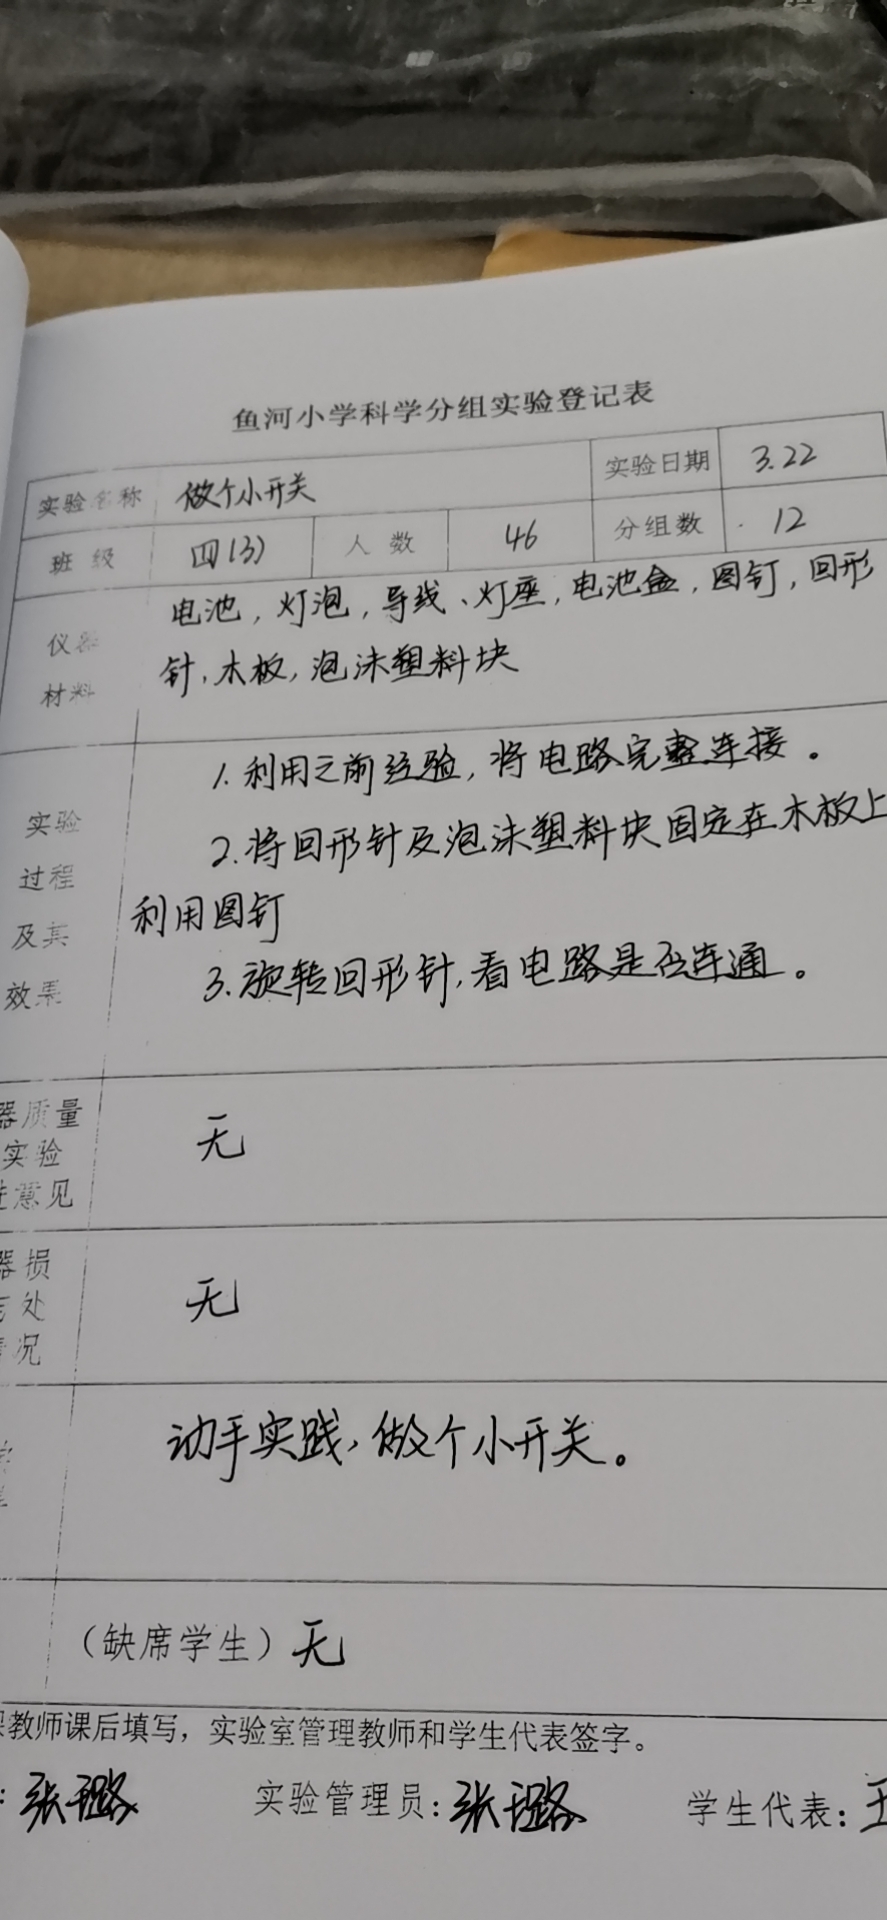 鱼河小学科学分组实验登记表
实验名称 做个小开关 实验日期 3.22
班 级 四(3) 人 数 46 分组数 12
仪器材料
电池，灯泡，导线、灯座，电池盒，图钉，回形
针，木板，泡沫塑料块
实验过程及其效果
1.利用之前经验，将电路完整连接。
2.将回形针及泡沫塑料块固定在木板上
利用图钉
3.旋转回形针，看电路是否连通。
器质量
实验
意见
无
器损
处
况
无
动手实践，做个小开关。
（缺席学生）无
教师课后填写，实验室管理教师和学生代表签字。
：张璐 实验管理员：张璐 学生代表：王